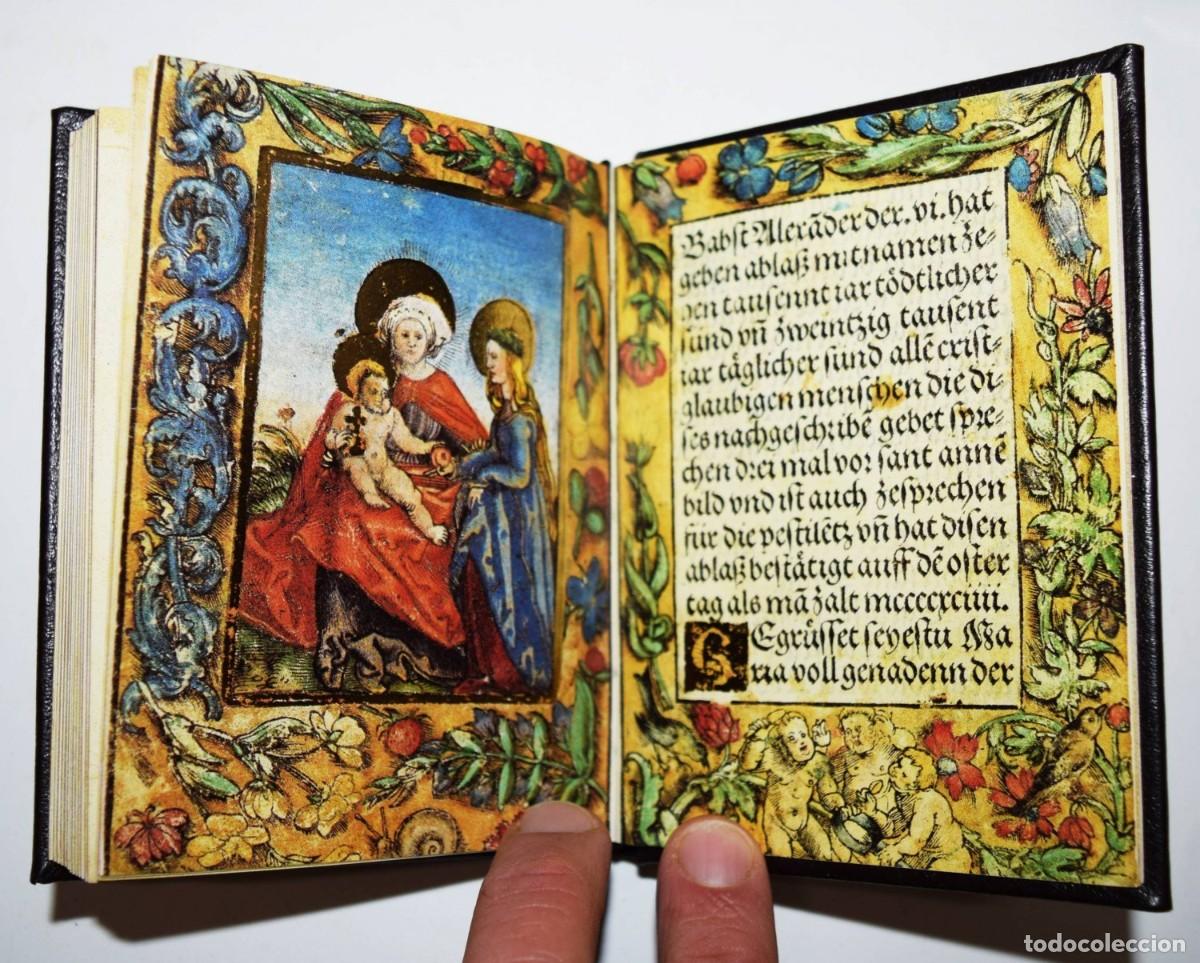 Babst Alexãder der . vi . hat
geben ablaß mit namen ze-
hen tausennt iar tödtlicher
sund vñ zweintzig tausent
iar täglicher sund allẽ crist-
glaubigen menschen die di-
ses nachgeschribẽ gebet spre-
chen drei mal vor sant annẽ
bild vnd ist auch zesprechen
für die pestilẽtz vñ hat disen
ablaß bestätigt auff dẽ oster
tag als mã zalt mccccxciiii.
GEgrüsset seyestu Ma
ria voll genadenn der
todocoleccion